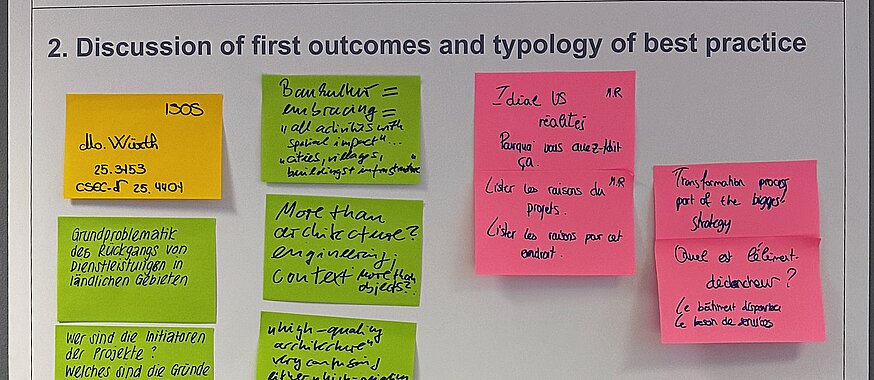 2. Discussion of first outcomes and typology of best practice
ISOS
Mo. Würth
25.3153
CSEC-N 25.4404
Grundproblematik
des Rückgangs von
Dienstleistungen in
ländlichen Gebieten
Wer sind die Initiatoren
der Projekte?
Welches sind die Gründe
Baukultur =
embracing =
"all activities with
spatial impact"...
"cities, villages,
buildings+infrastructure
More than
architecture?
engineering,
context More than
objects?
"high-quality
architecture"
very confusing
Idéal US M.R
réalités
Pourquoi vous avez-fait
ça.
Lister les raisons du M.R
projets.
Lister les raisons par cet
endroit.
Transformation process
part of the bigger
strategy
Quel est l'élément-
déclencheur?
Le bâtiment
Le besoin de services